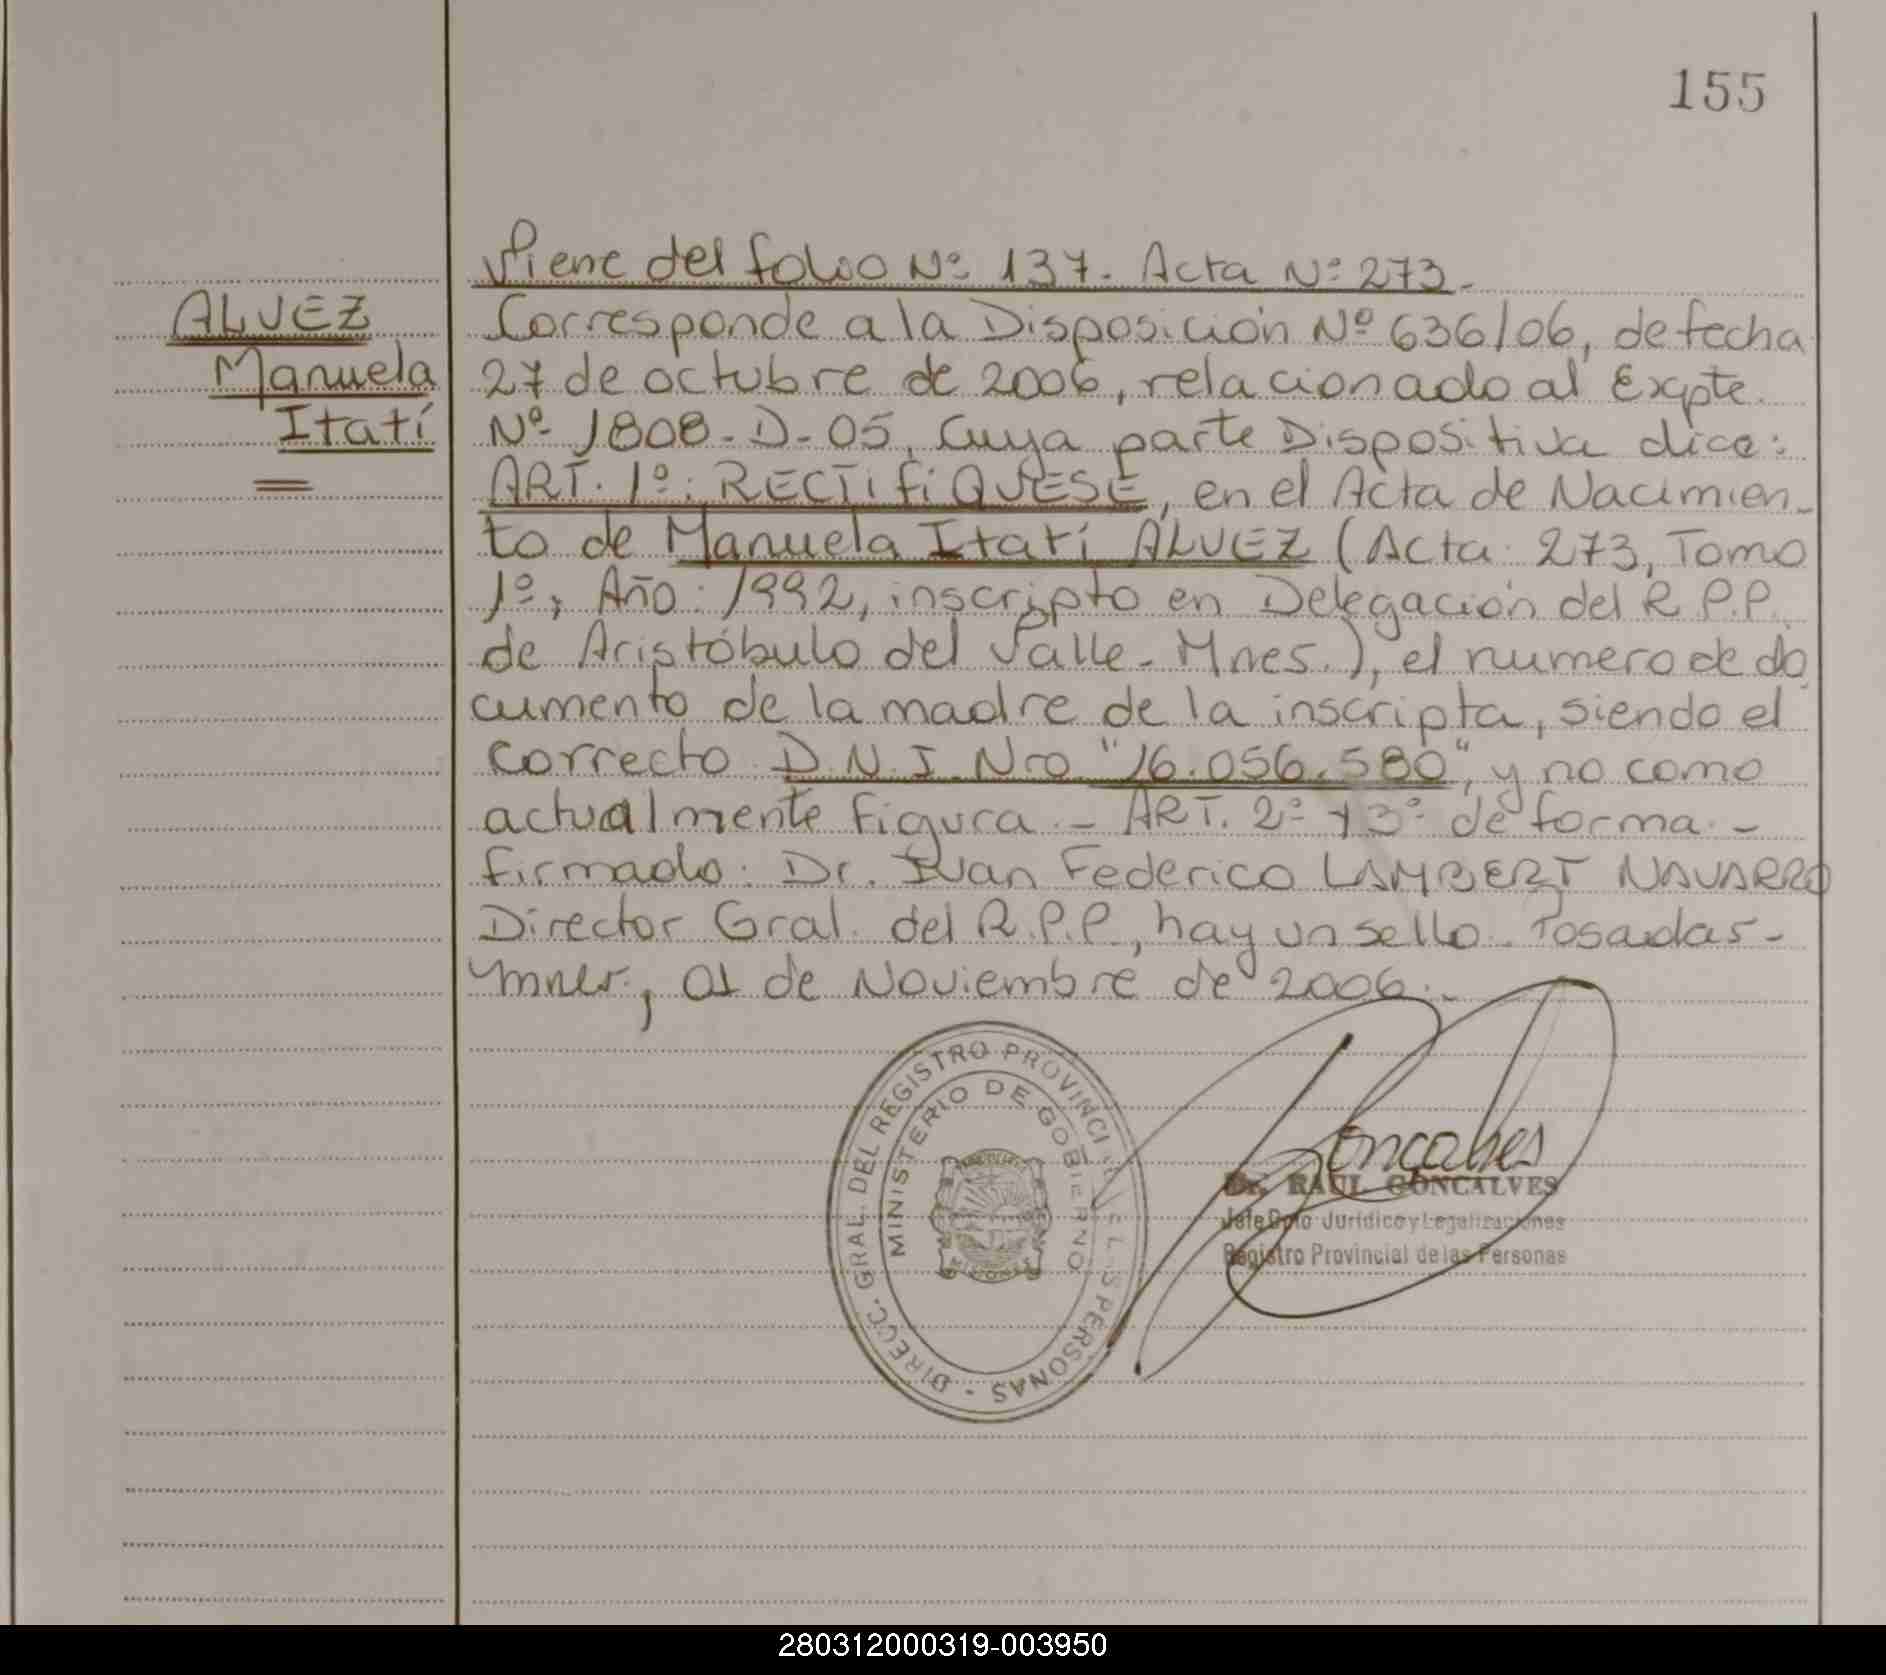 155
Viene del folio Nº 137. Acta Nº 273.
ALVEZ
Manuela
Itatí
Corresponde a la Disposición Nº 636/06, de fecha
27 de octubre de 2006, relacionado al Expte.
Nº 1808-D-05, cuya parte Dispositiva dice:
ART. 1º: RECTIFIQUESE, en el Acta de Nacimien-
to de Manuela Itatí ALVEZ (Acta: 273, Tomo
1º; Año: 1992, inscripto en Delegación del R.P.P.
de Aristóbulo del Valle-Mnes.), el numero de do
cumento de la madre de la inscripta, siendo el
correcto D.N.I. Nro "16.056.580", y no como
actualmente figura.- ART. 2º y 3º de forma.-
firmado: Dr. Ivan Federico LAMBERT NAVARRO
Director Gral. del R.P.P., hay un sello. Posadas-
Mnes., 01 de Noviembre de 2006.-
DIRECC. GRAL. DEL REGISTRO PROVINCIAL DE LAS PERSONAS -
MINISTERIO DE GOBIERNO
MISIONES
Goncalves
Dr. RAUL GONCALVES
Jefe Dpto Jurídico y Legalizaciones
Registro Provincial de las Personas
280312000319-003950